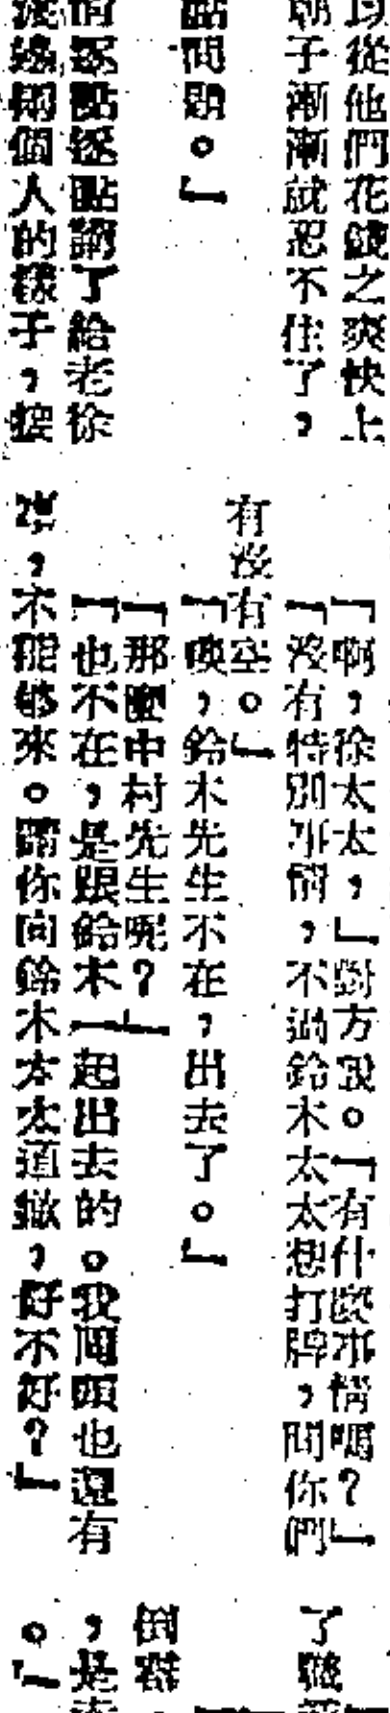 以從他們花錢之爽快上
子漸漸就忍不住了，
問題。」
逐點逐點講了給老徐
兩個人的樣子，據
「啊，徐太太，」對方說。「有什麼事情嗎？」
「沒有特別事情，不過鈴木太太想打牌，問你們
有沒有空。」
「噢，鈴木先生不在，出去了。」
「那麼中村先生呢？」
「也不在，是跟鈴木一起出去的。我間頭也還有
，不能够來。請你向鈴木太太道歉，好不好？」
了
倒霉
，是
。」